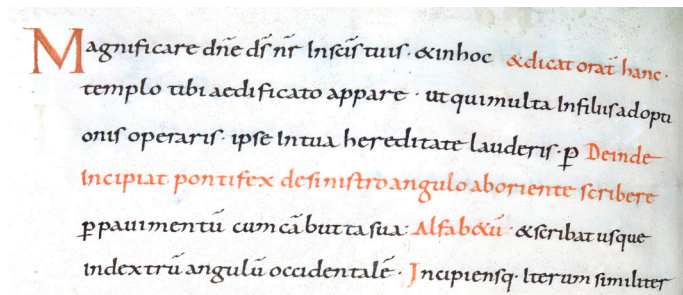 Magnificare dnē ds̄ nr̄ Insc̄is tuis · &inhoc &dicat orat̄ hanc ·
templo tibi aedificato appare · ut qui multa Infilius adopti
onis operaris · ipse Intua hereditate lauderis · p̱ Deinde
incipiat pontifex desinistro angulo aboriente scribere
p̱ pauimentū cum cābutta sua · Alfab&ū · &scribat usque
indextrū angulū occidentalē · Incipiensq · Iterum similiter